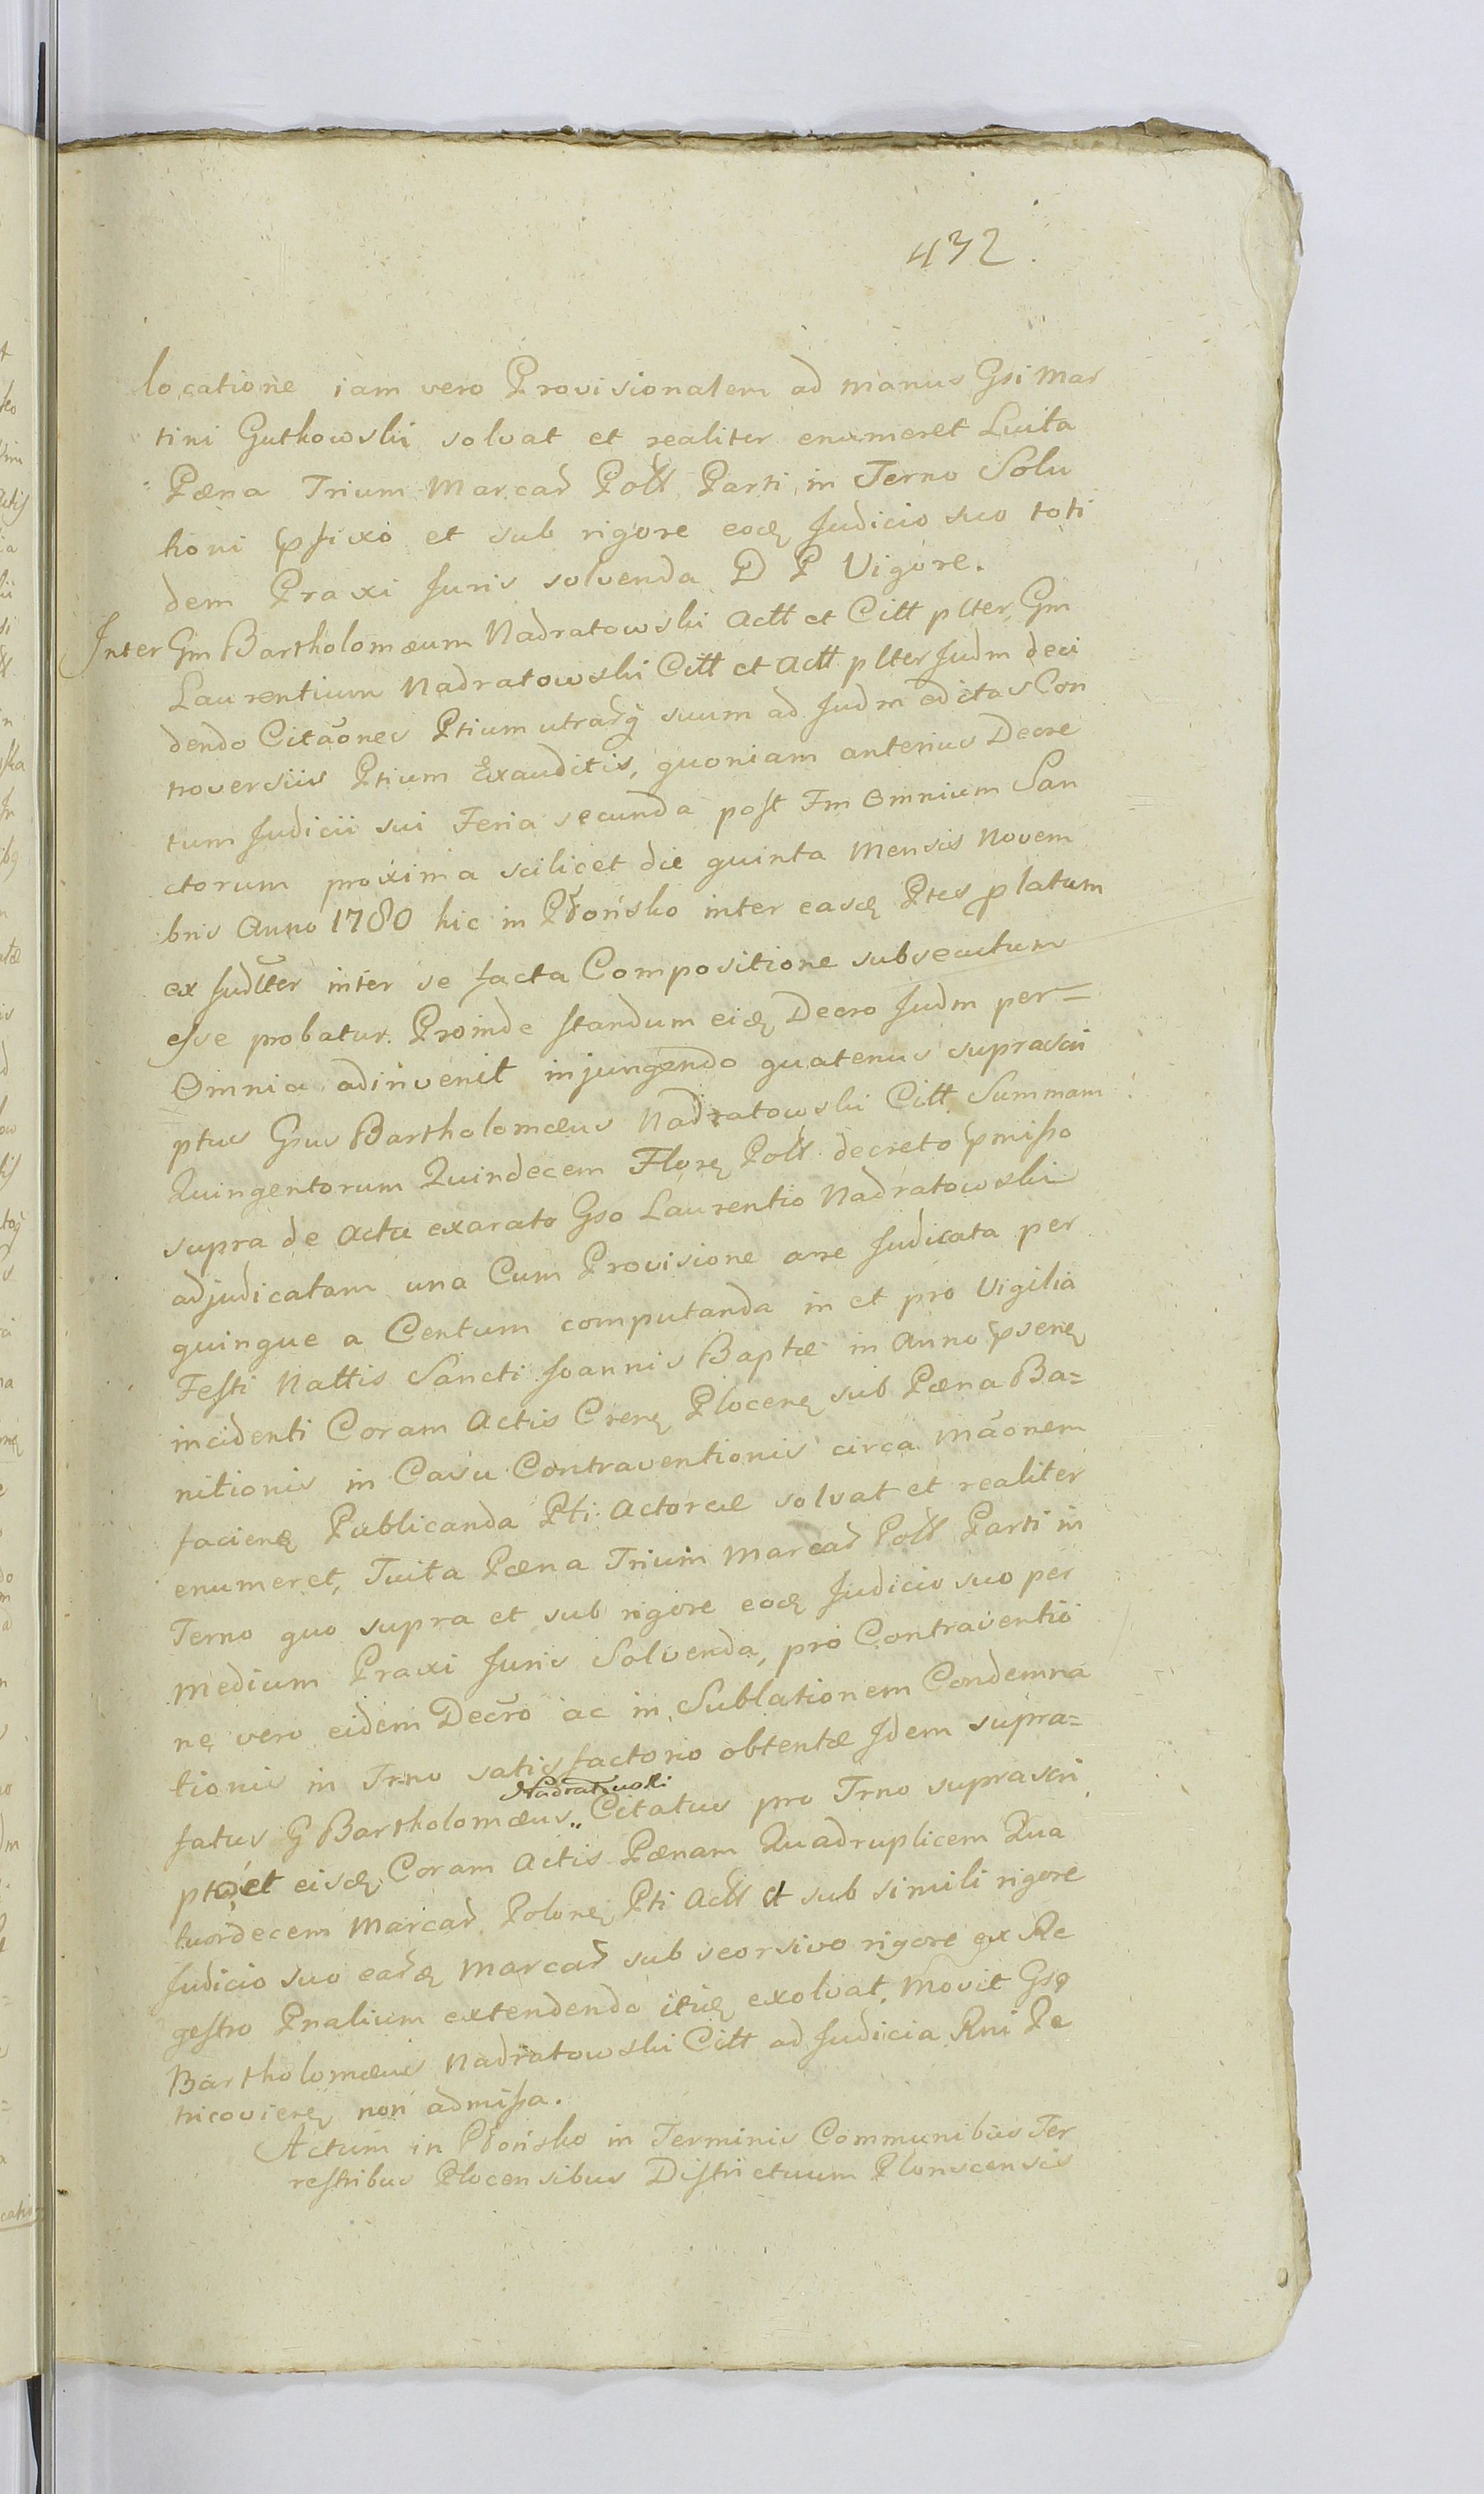 432.
locatione iam vero Provisionalem ad manus Gsi Mar
tini Gutkowski solvat et realiter enumeret Luita
Pæna Trium Marcar Poll Parti in Terno Solu
tioni pfixo et sub rigore eoq Judicio suo toti
dem Praxi Juris solvenda D P Vigore.
Inter Gm Bartholomæum Nadratowski Actt et Citt plter, Gm
Laurentium Nadratowski Citt et Actt plter Judm deci
dendo Citaõnes Ptium utrarq suum ad Judm editas Con
troversiis Ptium Exauditis, quoniam anterius Decre
tum Judicii sui Feria secunda post Fm Omnium San
ctorum proxima scilicet die quinta Mensis Novem
bris Anno 1780 hic in Płońsko inter easq Ptes platum
ex Judllter inter se facta Compositione subsecutum
esse probatur. Proinde standum eiq Decro Judm per=
Omnia adinvenit injungendo quatenus suprascri
ptus Gsus Bartholomæus Nadratowski Citt Summam
Quingentorum Quindecem Florq Poll decreto pmisso
supra de actu exarato Gso Laurentio Nadratowski
adjudicatam una Cum Provisione a rre Judicata per
quinque a Centum computanda in et pro Vigilia
Festi Nattis Sancti Joannis Baptæ in Anno psenq
incidenti Coram Actis Crenq Plocenq sub Pæna Ba=
nitionis in Casu Contraventionis circa Maonem
facienq Publicanda Pti Actoreæ solvat et realiter
enumeret, Tuita Pæna Trium Marcar Poll Parti in
Terno quo supra et sub rigore eoq Judicio suo per
medium Praxi Juris Solvenda, pro Contraventio
ne vero eidem Decro ac in Sublationem Condemna
tionis in Trno satisfactorio obtentæ Idem supra=
fatus G Bartholomæus,, Nadratowski Citatus pro Trno suprascri
pto, et eisq Coram Actis Pænam Quadruplicem Qua
tuordecem Marcar Polonq Pti Actt et sub simili rigore
Judicio suo earq Marcar sub seorsivo rigore ex Re
gestro Pnalium extendendo ituq exolvat. Movit Gsq
Bartholomæus Nadratowski Citt ad Judicia Rni Pe
tricovienq non admissa.
Actum in Płońsko in Terminis Communibus Ter
restribus Plocensibus Districtuum Plonscensis